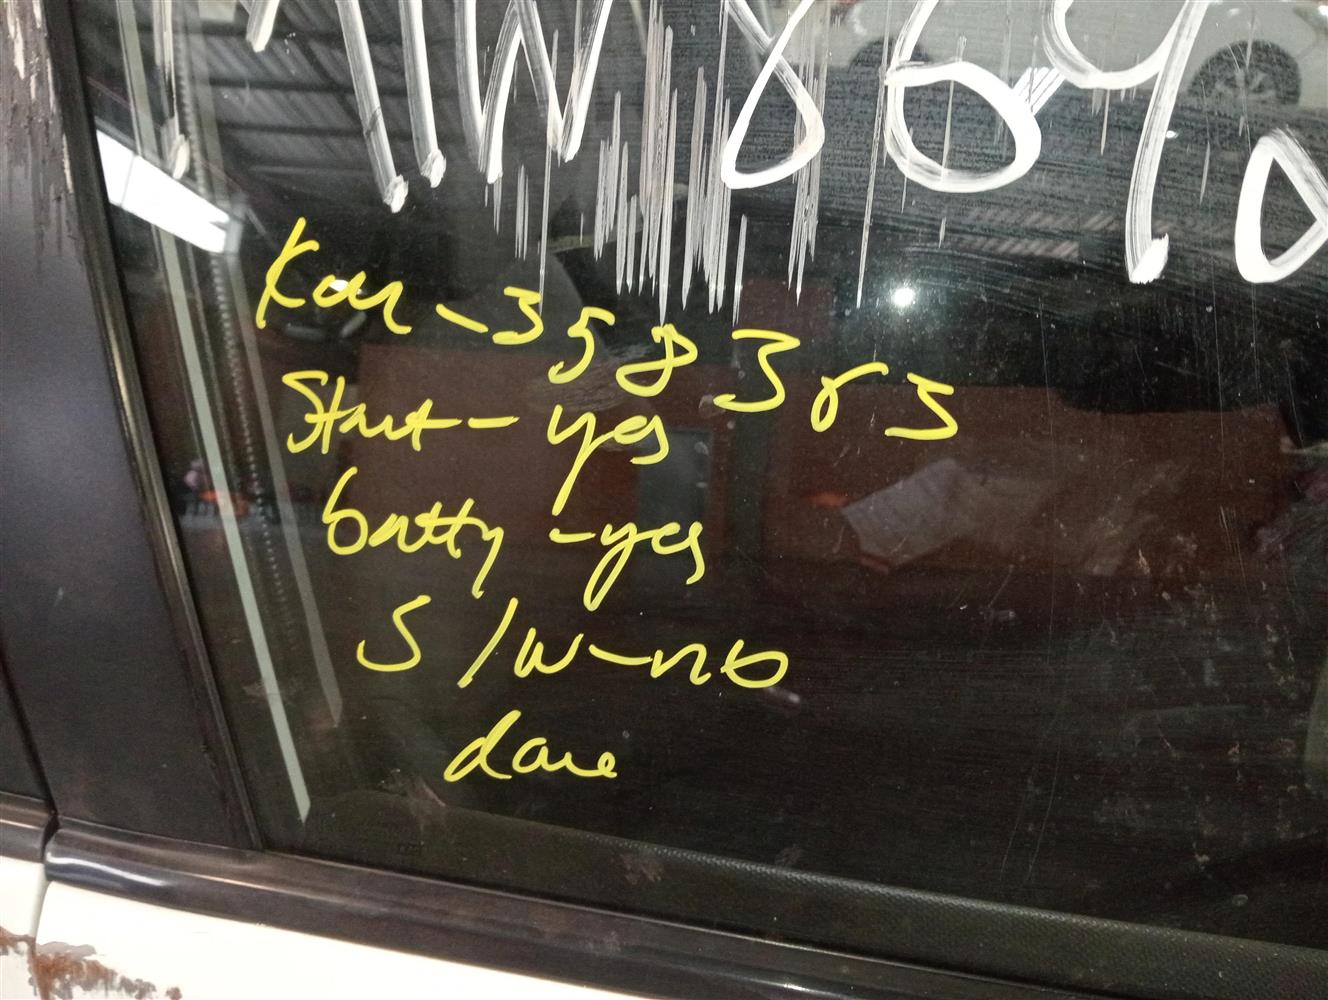 MW8690
Km - 358385
Start - yes
batty - yes
S/W - no
dave